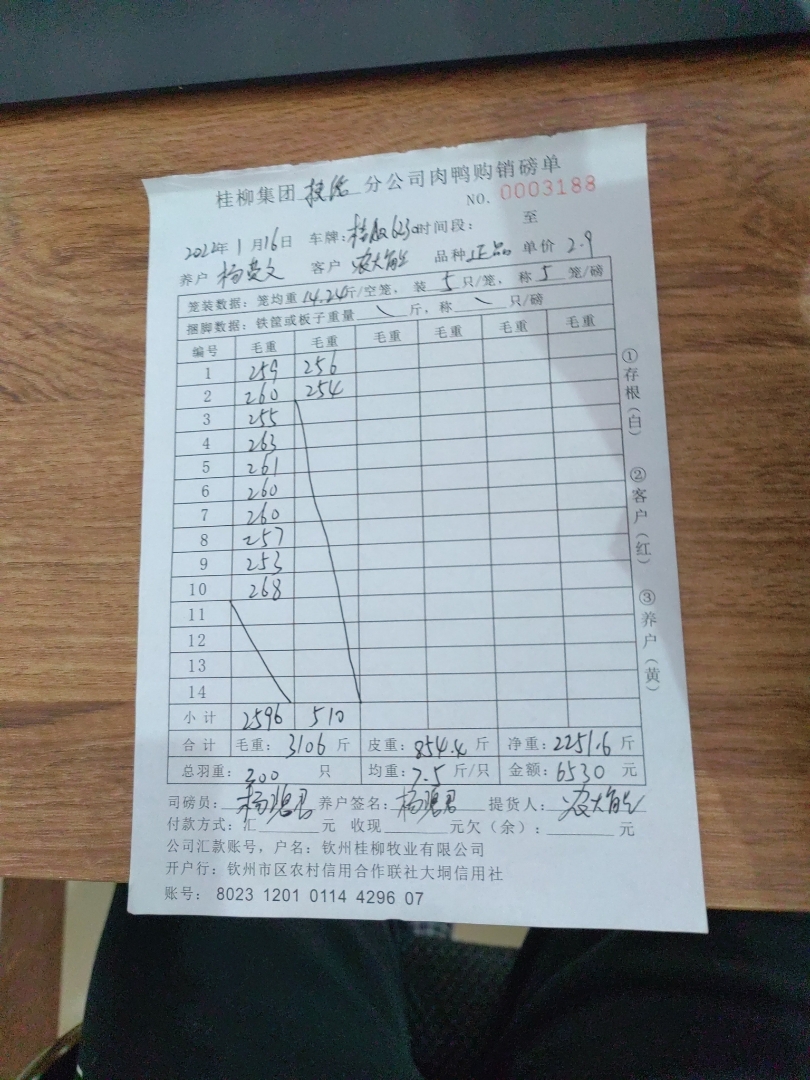 桂柳集团 分公司肉鸭购销磅单
NO. 0003188
2022年1月16日 车牌: 时间段: 至
养户 杨 文 客户 农大 品种 正品 单价 2.9
笼装数据: 笼均重 14.24斤/空笼, 装 5 只/笼, 称 5 笼/磅
捆脚数据: 铁筐或板子重量 \ 斤, 称 \ 只/磅
编号 毛重 毛重 毛重 毛重 毛重 毛重
1 259 256
2 260 254
3 255
4 263
5 261
6 260
7 260
8 257
9 253
10 268
11
12
13
14
小计 2596 510
合计 毛重: 3106 斤 皮重: 854.4 斤 净重: 2251.6 斤
总羽重: 300 只 均重: 7.5 斤/只 金额: 6530 元
司磅员: 杨 君 养户签名: 杨 君 提货人: 农大
付款方式: 汇 元 收现 元欠(余): 元
公司汇款账号, 户名: 钦州桂柳牧业有限公司
开户行: 钦州市区农村信用合作联社大垌信用社
账号: 8023 1201 0114 4296 07
①存根(白)
②客户(红)
③养户(黄)